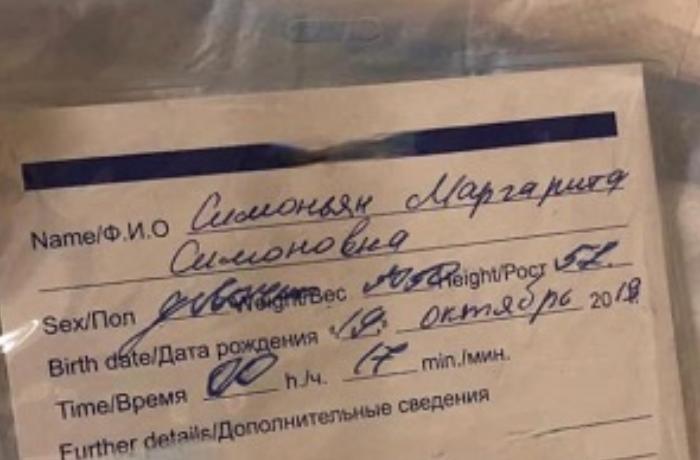 Name/Ф.И.О Симоньян Маргарита
Симоновна
Sex/Пол девочка Weight/Вес Height/Рост 52.
Birth date/Дата рождения "19" октябрь 2019
Time/Время 00 h./ч. 17 min./мин.
Further details/Дополнительные сведения